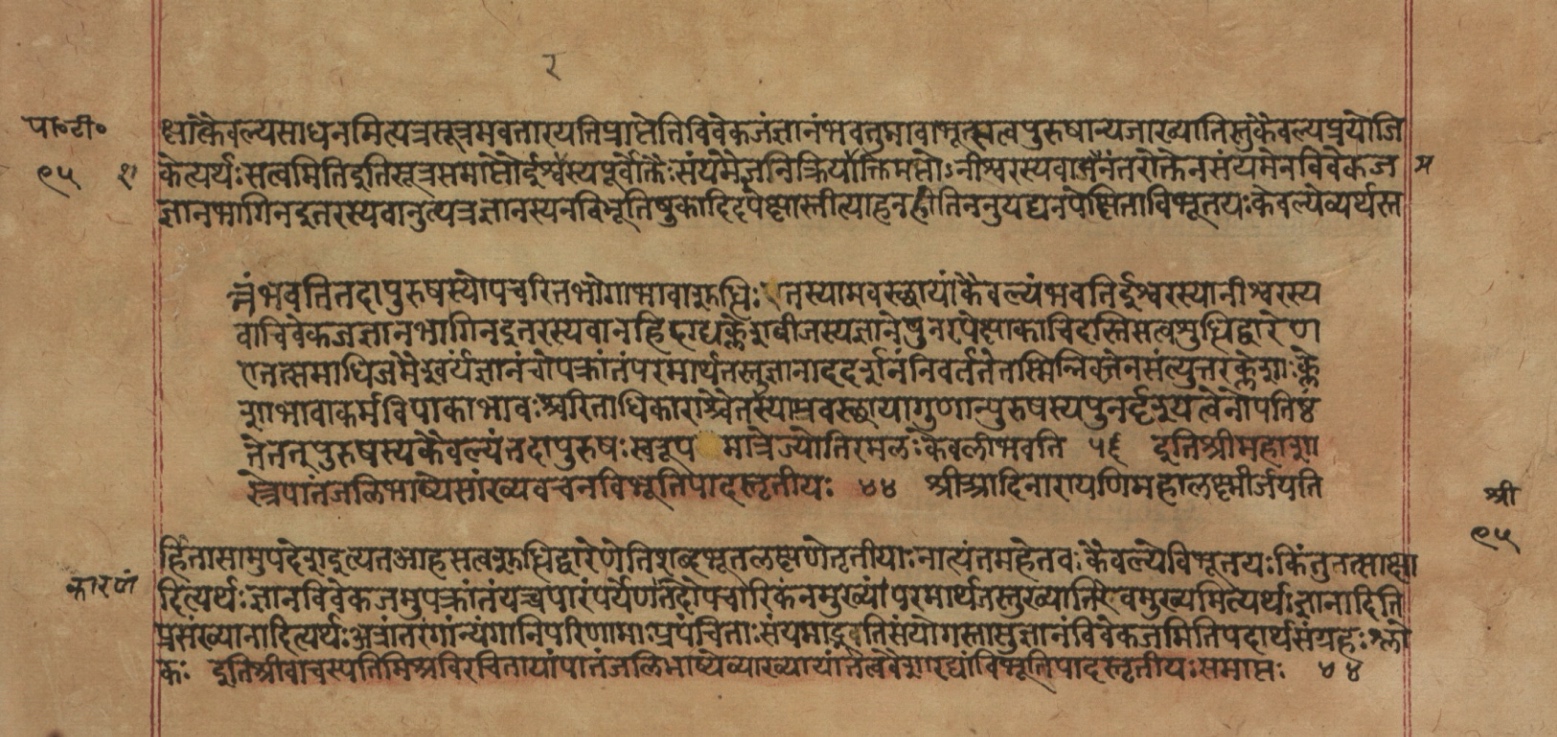 र
पा॰टी॰
९५
क्षात्कैवल्यसाधनमित्यत्रसूत्रमवतारयतिप्राप्तेतिविवेकजंज्ञानंभवतुमावाभूत्सत्वपुरुषान्यताख्यातिस्तुकैवल्यप्रयोजि
केत्यर्थःसत्वमितिइतिसूत्रसमाप्तौईश्वरस्यपूर्वोक्तैःसंयमैर्ज्ञानक्रियाशक्तिमतोऽनीश्वरस्यवाअनंतरोक्तेनसंयमेनविवेकज
ज्ञानभागिनइतरस्यवानुत्पन्नज्ञानस्यनविभूतिषुकाचिदपेक्षास्तीत्याहनहीतिननुयद्यनपेक्षिताविभूतयःकैवल्येव्यर्थस्त
न्नंभवतितदापुरुषस्योपचरितभोगाभावःशुद्धिःएतस्यामवस्छायांकैवल्यंभवतिईश्वरस्यानीश्वरस्य
वाविवेकजज्ञानभागिनइतरस्यवानहिदग्धक्लेशबीजस्यज्ञानेपुनरपेक्षाकाचिदस्तिसत्वशुद्धिद्वारेण
एतत्समाधिजमैश्वर्यंज्ञानंचोपक्रांतंपरमार्थतस्तुज्ञानाददर्शनंनिवर्ततेतस्मिन्निवृत्तेनसंत्युत्तरक्लेशाःक्ले
शाभावात्कर्मविपाकाभावःचरिताधिकाराश्चैतस्यामवस्छायांगुणानपुरुषस्यपुनर्दृश्यत्वेनोपतिष्ठं
तेतत्पुरुषस्यकैवल्यंतदापुरुषःस्वरूपमात्रज्योतिरमलःकेवलीभवति ५६ इतिश्रीमहाशा
स्त्रेपातंजलिभाष्येसांख्यवचनविभूतिपादस्तृतीयः ४४ श्रीआदिनारायणिमहालक्ष्मीर्जयति
श्री
९५
र्हितासामुपदेशइत्यतआहसत्वशुद्धिद्वारेणेतिइत्थंभूतलक्षणेतृतीयाःनात्यंतमहेतवःकैवल्येविभूतयःकिंतुनसाक्षा
कारणं
दित्यर्थःज्ञानंविवेकजमुपक्रांतंयच्चपारंपर्येणतदौपचारिकंनमुख्यंपरमार्थतस्तुख्यातिरेवमुख्यमित्यर्थःज्ञानादिति
प्रसंख्यानादित्यर्थःअत्रांतरंगान्यंगानिपरिणामाःप्रपंचिताःसंयमाद्भूतिसंयोगस्तासुज्ञानंविवेकजमितिपदार्थसंग्रहःश्लो
कः इतिश्रीवाचस्पतिमिश्रविरचितायांपातंजलिभाष्येव्याख्यायांतत्ववैशारद्यांविभूतिपादस्तृतीयःसमाप्तः ४४